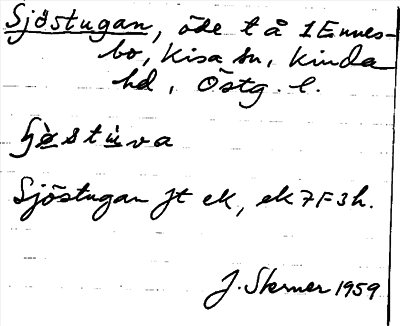 Sjöstugan, öde t å 1 Ennes-
bo, Kisa sn, Kinda
hd, Östg. l.
Sjöstugan jt ek, ek 7F3h.
J. Sterner 1959